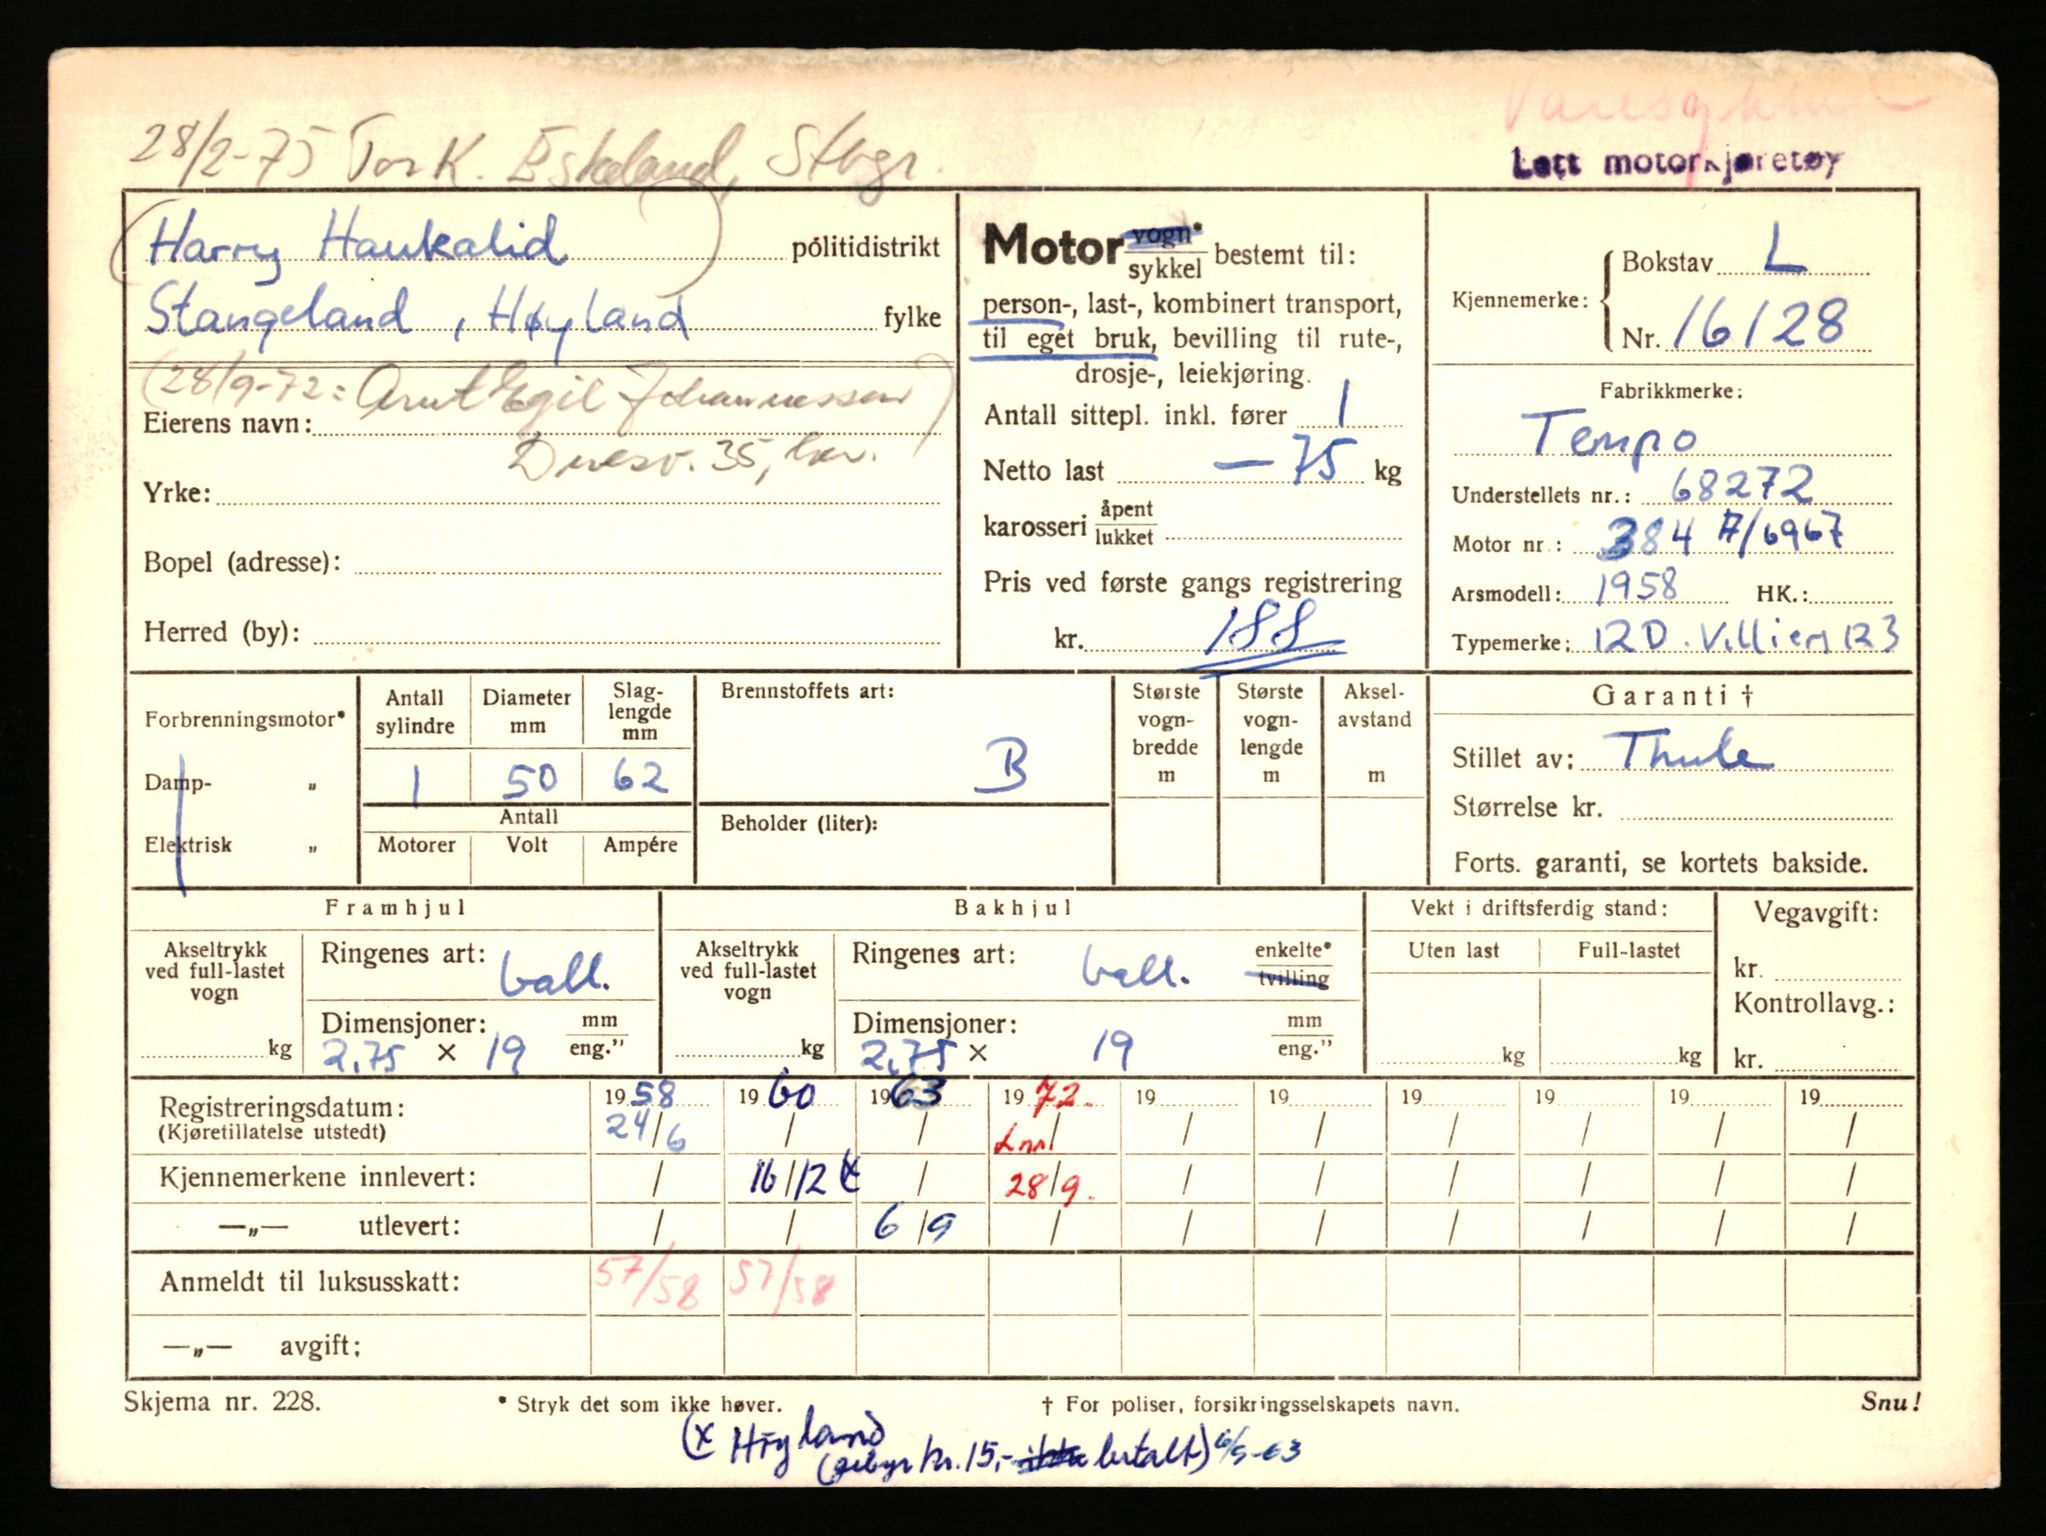 28/2-75 Tor K. Eskeland, Stvgr.
Varesykkel
Lett motorkjøretøy
(Harry Haukalid) politidistrikt
Stangeland, Høyland fylke
(28/9-72: Arnt Egil Johannessen)
Eierens navn:
35,
Yrke:
Bopel (adresse):
Herred (by):
Motor vogn* sykkel bestemt til:
person-, last-, kombinert transport,
til eget bruk, bevilling til rute-,
drosje-, leiekjøring.
Antall sittepl. inkl. fører 1
Netto last — 75 kg
karosseri åpent lukket
Pris ved første gangs registrering
kr. 188
Kjennemerke: Bokstav L
Nr. 16128
Fabrikkmerke:
Tempo
Understellets nr.: 68272
Motor nr.: 384 A/6967
Arsmodell: 1958 HK.:
Typemerke: 12D. Villiers 123
Forbrenningsmotor*
Damp- „
Elektrisk „
Antall sylindre
Diameter mm
Slag-lengde mm
1 50 62
Antall
Motorer Volt Ampére
Brennstoffets art:
B
Beholder (liter):
Største vogn-bredde m
Største vogn-lengde m
Aksel-avstand m
Garanti †
Stillet av: Thule
Størrelse kr.
Forts. garanti, se kortets bakside.
Framhjul
Akseltrykk ved full-lastet vogn
kg
Ringenes art: ball.
Dimensjoner: mm eng."
2.75 × 19
Bakhjul
Akseltrykk ved full-lastet vogn
kg
Ringenes art: ball. enkelte* tvilling
Dimensjoner: mm eng."
2.75 × 19
Vekt i driftsferdig stand:
Uten last Full-lastet
kg kg
Vegavgift:
kr.
Kontrollavg.:
kr.
Registreringsdatum: 1958 1960 1963 1972. 19 19 19 19 19 19
(Kjøretillatelse utstedt) 24/6 / / Lnr/ / / / / / /
Kjennemerkene innlevert: / 16/12 x / 28/9. / / / / / /
—„— utlevert: / / 6/9 / / / / / / /
Anmeldt til luksusskatt: 57/58 57/58
—„— avgift:
Skjema nr. 228. * Stryk det som ikke høver. † For poliser, forsikringsselskapets navn. Snu!
(x Høyland
(gebyr kr. 15,- ikke betalt) 6/9-63